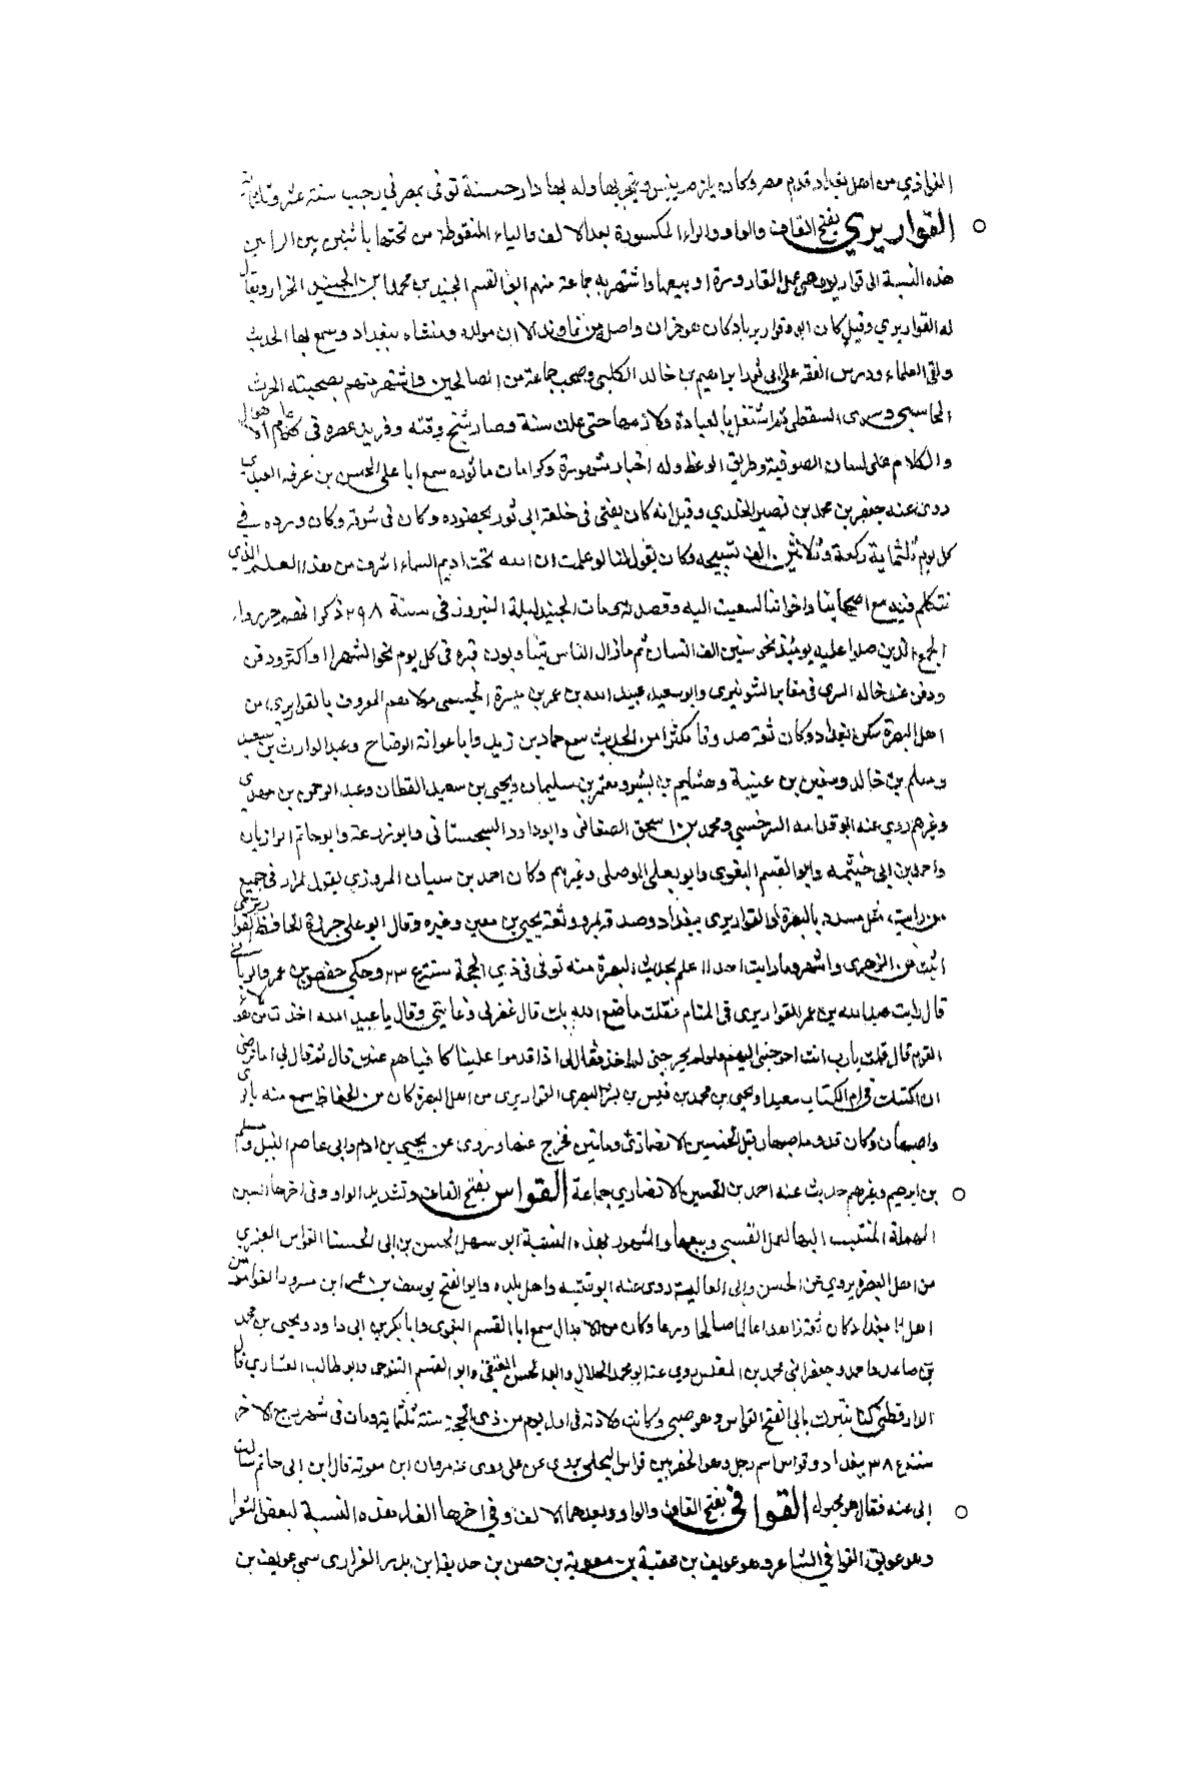 من اهل بغداد قدم مصر وكان يلزم تنيس ويتجر بها وله بها دار حسنة توفى بمصر في رجب سنة عشر وثلثمائة
القواريري بفتح القاف والواو والراء المكسورة بعد الالف والياء المنقوطة من تحتها باثنتين بين الرايين
هذه النسبة الى قوارير وهي عمل القارورة او بيعها واشتهر به جماعة منهم ابو القسم الجنيد بن محمد بن الجنيد الخزاز ويقال
له القواريري وقيل كان ابوه قواريريا وكان هو خزازا واصله من نهاوند الا ان مولده ومنشاه ببغداد وسمع بها الحديث
ولقى العلماء ودرس الفقه على ابى ثور ابراهيم بن خالد الكلبي وصحب جماعة من الصالحين واشتهر منهم بصحبته الحرث
المحاسبي وسرى السقطى ثم اشتغل بالعبادة ولازمها حتى علت سنه وصار شيخ وقته وفريد عصره فى علم الاحوال
والكلام على لسان الصوفية وطريق الوعظ وله اخبار مشهورة وكرامات ماثوره سمع ابا على الحسن بن عرفه العبدى
روى عنه جعفر بن محمد بن نصير الخلدي وقيل انه كان يفتى فى حلقة ابى ثور بحضوره وكان فى سوقه وكان ورده في
كل يوم ثلثماية ركعة وثلاثين الف تسبيحه وكان يقول لنا لو علمت ان الله تحت اديم السماء اشرف من هذا العلم الذي
نتكلم فيه مع اصحابنا واخواننا لسعيت اليه وقصدته مات الجنيد ليلة النيروز فى سنة ٢٩٨ ذكر انهم حزروا
الجمع الذين صلوا عليه يومئذ نحو ستين الف انسان ثم مازال الناس ينتابون قبره فى كل يوم نحو الشهر او اكثر ودفن
ودفن عند خاله السرى فى مقابر الشونيزى وابو سعيد عبيد الله بن عمر بن ميسرة الجشمى مولاهم المعروف بالقواريري من
اهل البصرة سكن بغداد وكان ثقة صدوقا مكثرا من الحديث سمع حماد بن زيد وابا عوانة الوضاح وعبد الوارث بن سعيد
ومسلم بن خالد وسفين بن عيينة وهشيم بن بشير ومعتمر بن سليمان ويحيى بن سعيد القطان وعبد الرحمن بن مهدى
وغيرهم روى عنه ابو قدامه السرخسي ومحمد بن اسحق الصغانى وابو داود السجستانى وابو زرعة وابو حاتم الرازيان
واحمد بن ابى خيثمه وابو القسم البغوى وابو يعلى الموصلى وغيرهم وكان احمد بن سيار المروزي يقول لم ار فى جميع
من رايت مثل مسدد بالبصرة والقواريرى ببغداد وصدقة بمرو وثقه يحيى بن معين وغيره وقال ابو على جزرة الحافظ القواريرى
اثبت من الزهرانى واشهر وما رايت احدا اعلم بحديث البصرة منه توفى فى ذي الحجة وحكى حفص بن عمر
قال رايت عبيد الله بن عمر القواريرى فى المنام فقلت ما صنع الله بك قال غفر لى وعاتبنى وقال يا عبيد الله اخذت من هؤلاء
القوم قال قلت يا رب انت احوجتنى اليهم ولو لم تحوجنى لم اخذ فقال لى اذا قدموا علينا كافيناهم عنك قال ثم قال لى اما ترضى
ان اكتبك فى ام الكتاب سعيدا ويحيى بن محمد بن قيس البصرى القواريرى من اهل البصرة كان من الحفاظ سمع منه
واصبهان وكان قدومه اصبهان قبل الخمسين ومايتين فخرج عنها وروى عن يحيى بن ادم وابى عاصم النبيل ومسلم
بن ابرهيم وغيرهم حديث عنه احمد بن الحسين الانصاري جماعة القواس بفتح القاف وتشديد الواو وفى اخرها السين
المهملة المنتسب اليها لعمل القسي وبيعها والمشهور بهذه النسبة ابو سهل الحسن بن ابى الحسناء القواس العنزى
من اهل البصرة يروي عن الحسن وابى العالية روى عنه ابو قتيبه واهل بلده وابو الفتح يوسف بن عمر بن مسرور القواس من
اهل بغداد كان ثقة زاهدا عالما صالحا ورعا وكان من الابدال سمع ابا القسم البغوى وابا بكر بن ابى داود ويحيى بن محمد
بن صاعد واحمد وجعفر ابنى محمد بن المغلس روى عنه ابو محمد الخلال وابو الحسن العتيقى وابو القسم التنوخى وابو طالب العشاري قال
الدارقطنى كنا نتبرك بابى الفتح القواس وهو صبى وكانت ولادته فى اول يوم من ذي الحجة سنة ثلثماية ومات فى شهر ربيع الاخر
ببغداد وقواس اسم رجل وهو الحضرمي بن قواس البجلى يروى عن على روى عنه مروان ابن معوية قال ابن ابى حاتم سالت
ابى عنه فقال هو مجهول القوافي بفتح القاف والواو وبعدهما الالف وفي اخرها الفاء هذه النسبة لبعض الشعرا
وهو عويف القوافي الشاعر وهو عويف بن عقبة بن معوية بن حصن بن حذيفة ابن بدر الفزارى سمى عويف بن